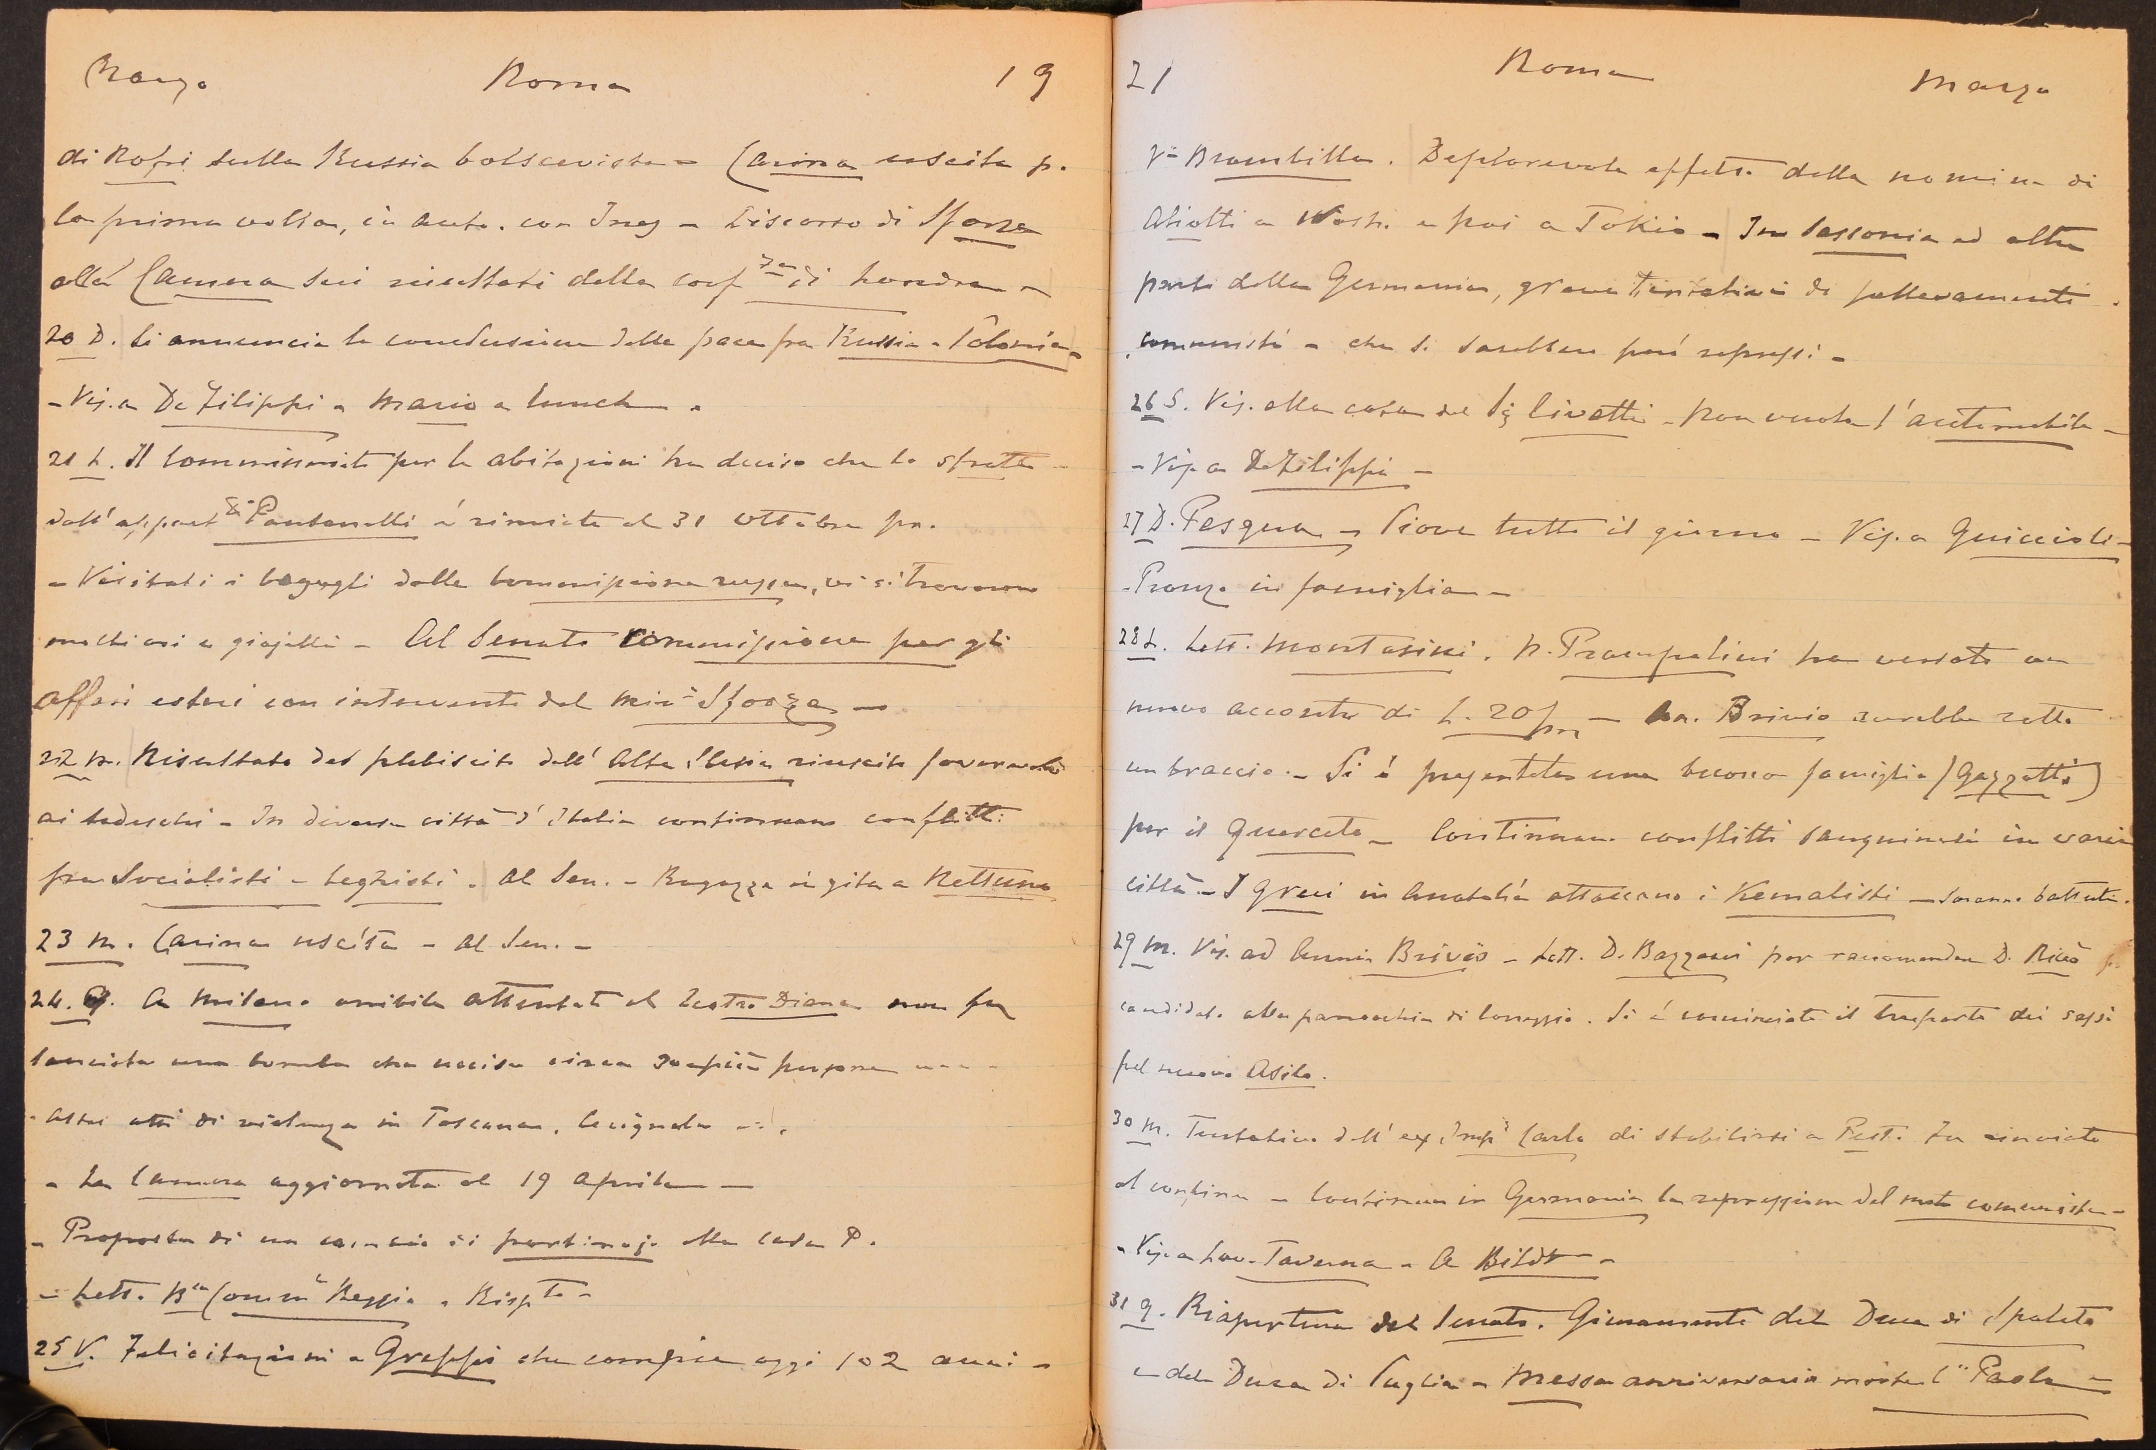 Marzo Roma 19
di Rossi sulla Russia bolscevista – Carina uscita p.
la prima volta, in auto. con Inez – Discorso di Sforza
alla Camera sui risultati della conf.za di Londra –
20 D. Si annuncia la conclusione della pace fra Russia - Polonia –
– Vis. a De Filippi – Mario a lunch –
21 L. Il Commissariato per le abitazioni ha deciso che lo sfratto
dall'appart. di Pantanelli è rinviato al 31 Ottobre pr.
– Visitati i bagagli della Commissione russa, vi si trovarono
molti ori e gioielli – Al Senato Commissione per gli
affari esteri con intervento del min.o Sforza –
22 M. Risultato del plebiscito dell'Alta Slesia riuscito favorevole
ai tedeschi – In diverse città d'Italia continuano conflitti
fra Socialisti – Leghisti – Al Sen. – Ragazze in gita a Nettuno
23 M. Carina uscita – Al Sen. –
24 G. A Milano orribile attentato al Teatro Diana ove fu
lanciata una bomba che uccise circa 30 e più persone
– Altri atti di violenza in Toscana,
– La Camera aggiornata al 19 Aprile –
– Proposta di un di portinajo alla casa P.
– Lett. B.ca Comm.le Reggio – Risp.to –
25 V. Felicitazioni a Greppi che compie oggi 102 anni –
21 Roma Marzo
Brambilla. Deplorevole effetto della nomina di
Aliotti a Wash. e poi a Tokio – In Sassonia ed altre
parti della Germania, gravi tentativi di sollevamenti
comunisti – che si sarebbero però repressi –
26 S. Vis. alla casa del Sig. Civetti – Non vuole l'automobile –
– Vis. a De Filippi –
27 D. Pasqua – Piove tutto il giorno – Vis. a Guiccioli –
– Pranzo in famiglia –
28 L. Lett. Montasini. N. Prampolini ha versato un
nuovo acconto di L. 20 – Brivio avrebbe rotto
un braccio – Si è presentata una buona famiglia (Gazzotti)
per il Querceto – Continuano conflitti sanguinosi in varie
città – I Greci in Anatolia attaccano i Kemalisti – saranno battuti.
29 M. Vis. ad Annie Brivio – Lett. D. Bazzani per raccomandare D. Riccò p.
candidato alla parrocchia di Correggio. Si è cominciato il trasporto dei sassi
pel nuovo Asilo.
30 M. Tentativo dell'ex Imp.e Carlo di stabilirsi a Pest. Fu rinviato
al confine – Continua in Germania la repressione del moto comunista –
– Vis. a Lav. Taverna – A Bildt –
31 G. Riapertura del Senato. Giuramento del Duca di Spoleto
e del Duca di Puglia – Messa anniversario morte C.ssa Paola –